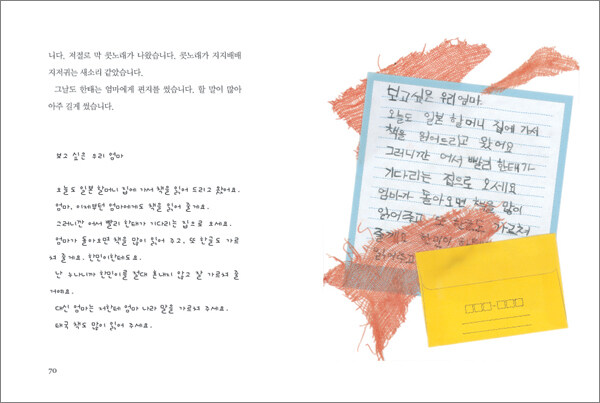 니다. 저절로 막 콧노래가 나왔습니다. 콧노래가 지지배배
지저귀는 새소리 같았습니다.
그날도 한태는 엄마에게 편지를 썼습니다. 할 말이 많아
아주 길게 썼습니다.
보고 싶은 우리 엄마
오늘도 일본 할머니 집에 가서 책을 읽어 드리고 왔어요.
엄마, 이제부턴 엄마에게도 책을 읽어 줄게요.
그러니깐 어서 빨리 한태가 기다리는 집으로 오세요.
엄마가 돌아오면 책을 많이 읽어 주고, 또 한글도 가르
쳐 줄게요. 한민이한테도요.
난 누나니까 한민이를 절대 혼내지 않고 잘 가르쳐 줄
거예요.
대신 엄마는 저한테 엄마 나라 말을 가르쳐 주세요.
태국 책도 많이 읽어 주세요.
70
보고싶은 우리 엄마
오늘도 일본 할머니 집에 가서
책을 읽어드리고 왔어요
그러니깐 어서 빨리 한태가
기다리는 집으로 오세요
엄마가 돌아오면 책을 많이
읽어주고 또 한글도 가르쳐
줄게요 한민이
읽어주고